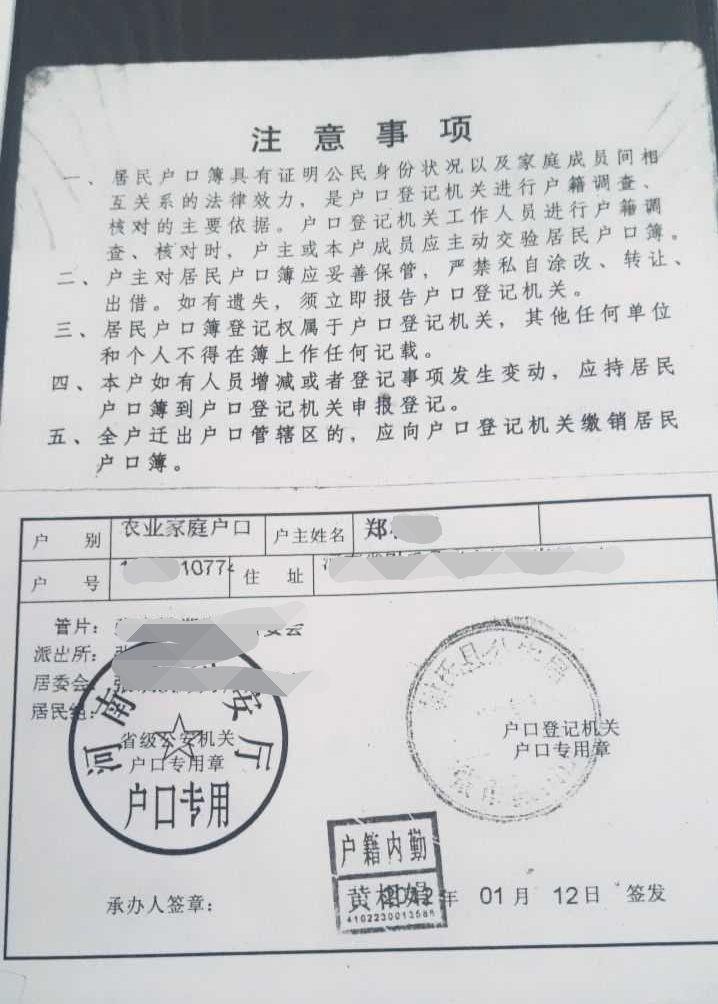 注意事项
一、居民户口簿具有证明公民身份状况以及家庭成员间相
互关系的法律效力，是户口登记机关进行户籍调查、
核对的主要依据。户口登记机关工作人员进行户籍调
查、核对时，户主或本户成员应主动交验居民户口簿。
二、户主对居民户口簿应妥善保管，严禁私自涂改、转让、
出借。如有遗失，须立即报告户口登记机关。
三、居民户口簿登记权属于户口登记机关，其他任何单位
和个人不得在簿上作任何记载。
四、本户如有人员增减或者登记事项发生变动，应持居民
户口簿到户口登记机关申报登记。
五、全户迁出户口管辖区的，应向户口登记机关缴销居民
户口簿。
户别 农业家庭户口 户主姓名 郑
户号 1077 住址
管片：
派出所：
居委会：
居民组：
河南 安厅
省级公安机关
户口专用章
户口专用
户口登记机关
户口专用章
户籍内勤
承办人签章： 年 01月 12日 签发